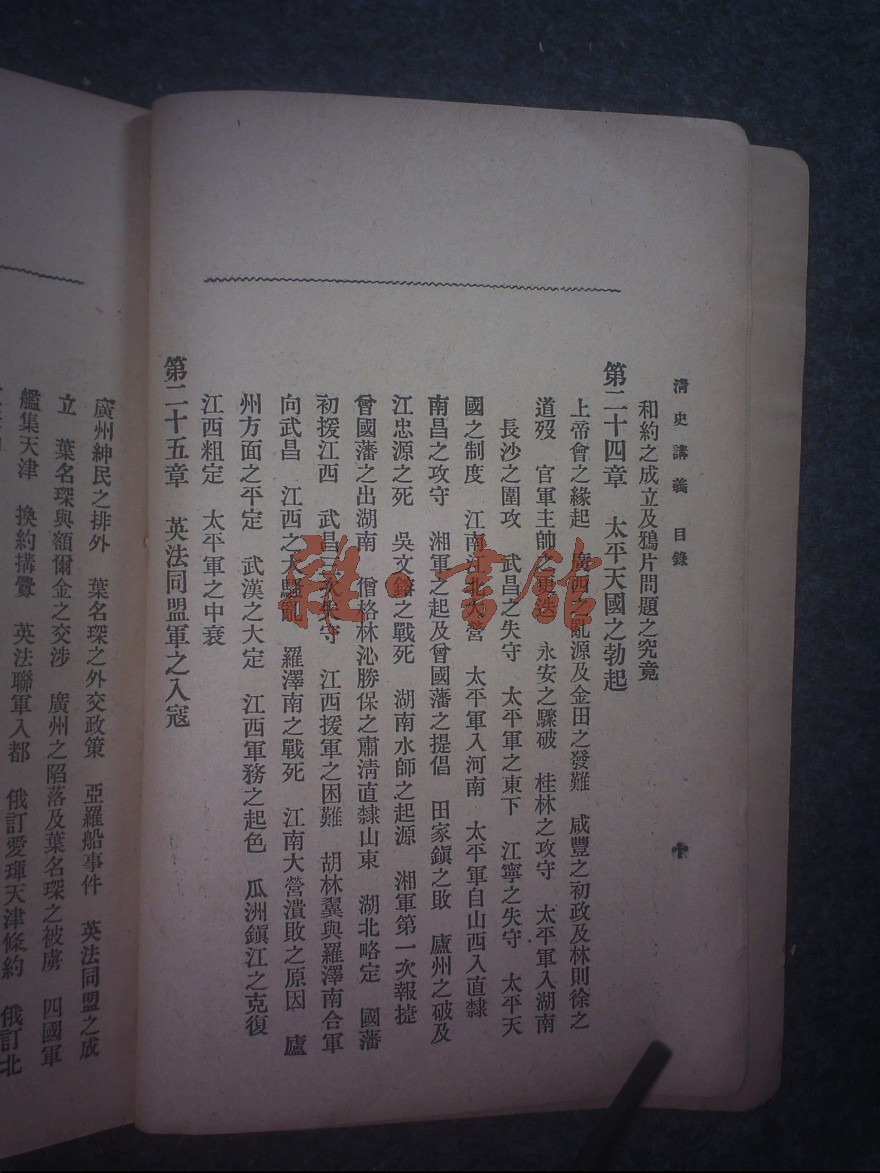 清史講義 目錄
和約之成立及鴉片問題之究竟
第二十四章 太平天國之勃起
上帝會之緣起 廣西之亂源及金田之發難 咸豐之初政及林則徐之
道歿 官軍主帥之更迭 永安之驟破 桂林之攻守 太平軍入湖南
長沙之圍攻 武昌之失守 太平軍之東下 江寧之失守 太平天
國之制度 江南江北大營 太平軍入河南 太平軍自山西入直隸
南昌之攻守 湘軍之起及曾國藩之提倡 田家鎮之敗 廬州之破及
江忠源之死 吳文鎔之戰死 湖南水師之起源 湘軍第一次報捷
曾國藩之出湖南 僧格林沁勝保之肅清直隸山東 湖北略定 國藩
初援江西 武昌三次失守 江西援軍之困難 胡林翼與羅澤南合軍
向武昌 江西之大騷亂 羅澤南之戰死 江南大營潰敗之原因 廬
州方面之平定 武漢之大定 江西軍務之起色 瓜洲鎮江之克復
江西粗定 太平軍之中衰
第二十五章 英法同盟軍之入寇
廣州紳民之排外 葉名琛之外交政策 亞羅船事件 英法同盟之成
立 葉名琛與額爾金之交涉 廣州之陷落及葉名琛之被虜 四國軍
艦集天津 換約搆釁 英法聯軍入都 俄訂愛琿天津條約 俄訂北